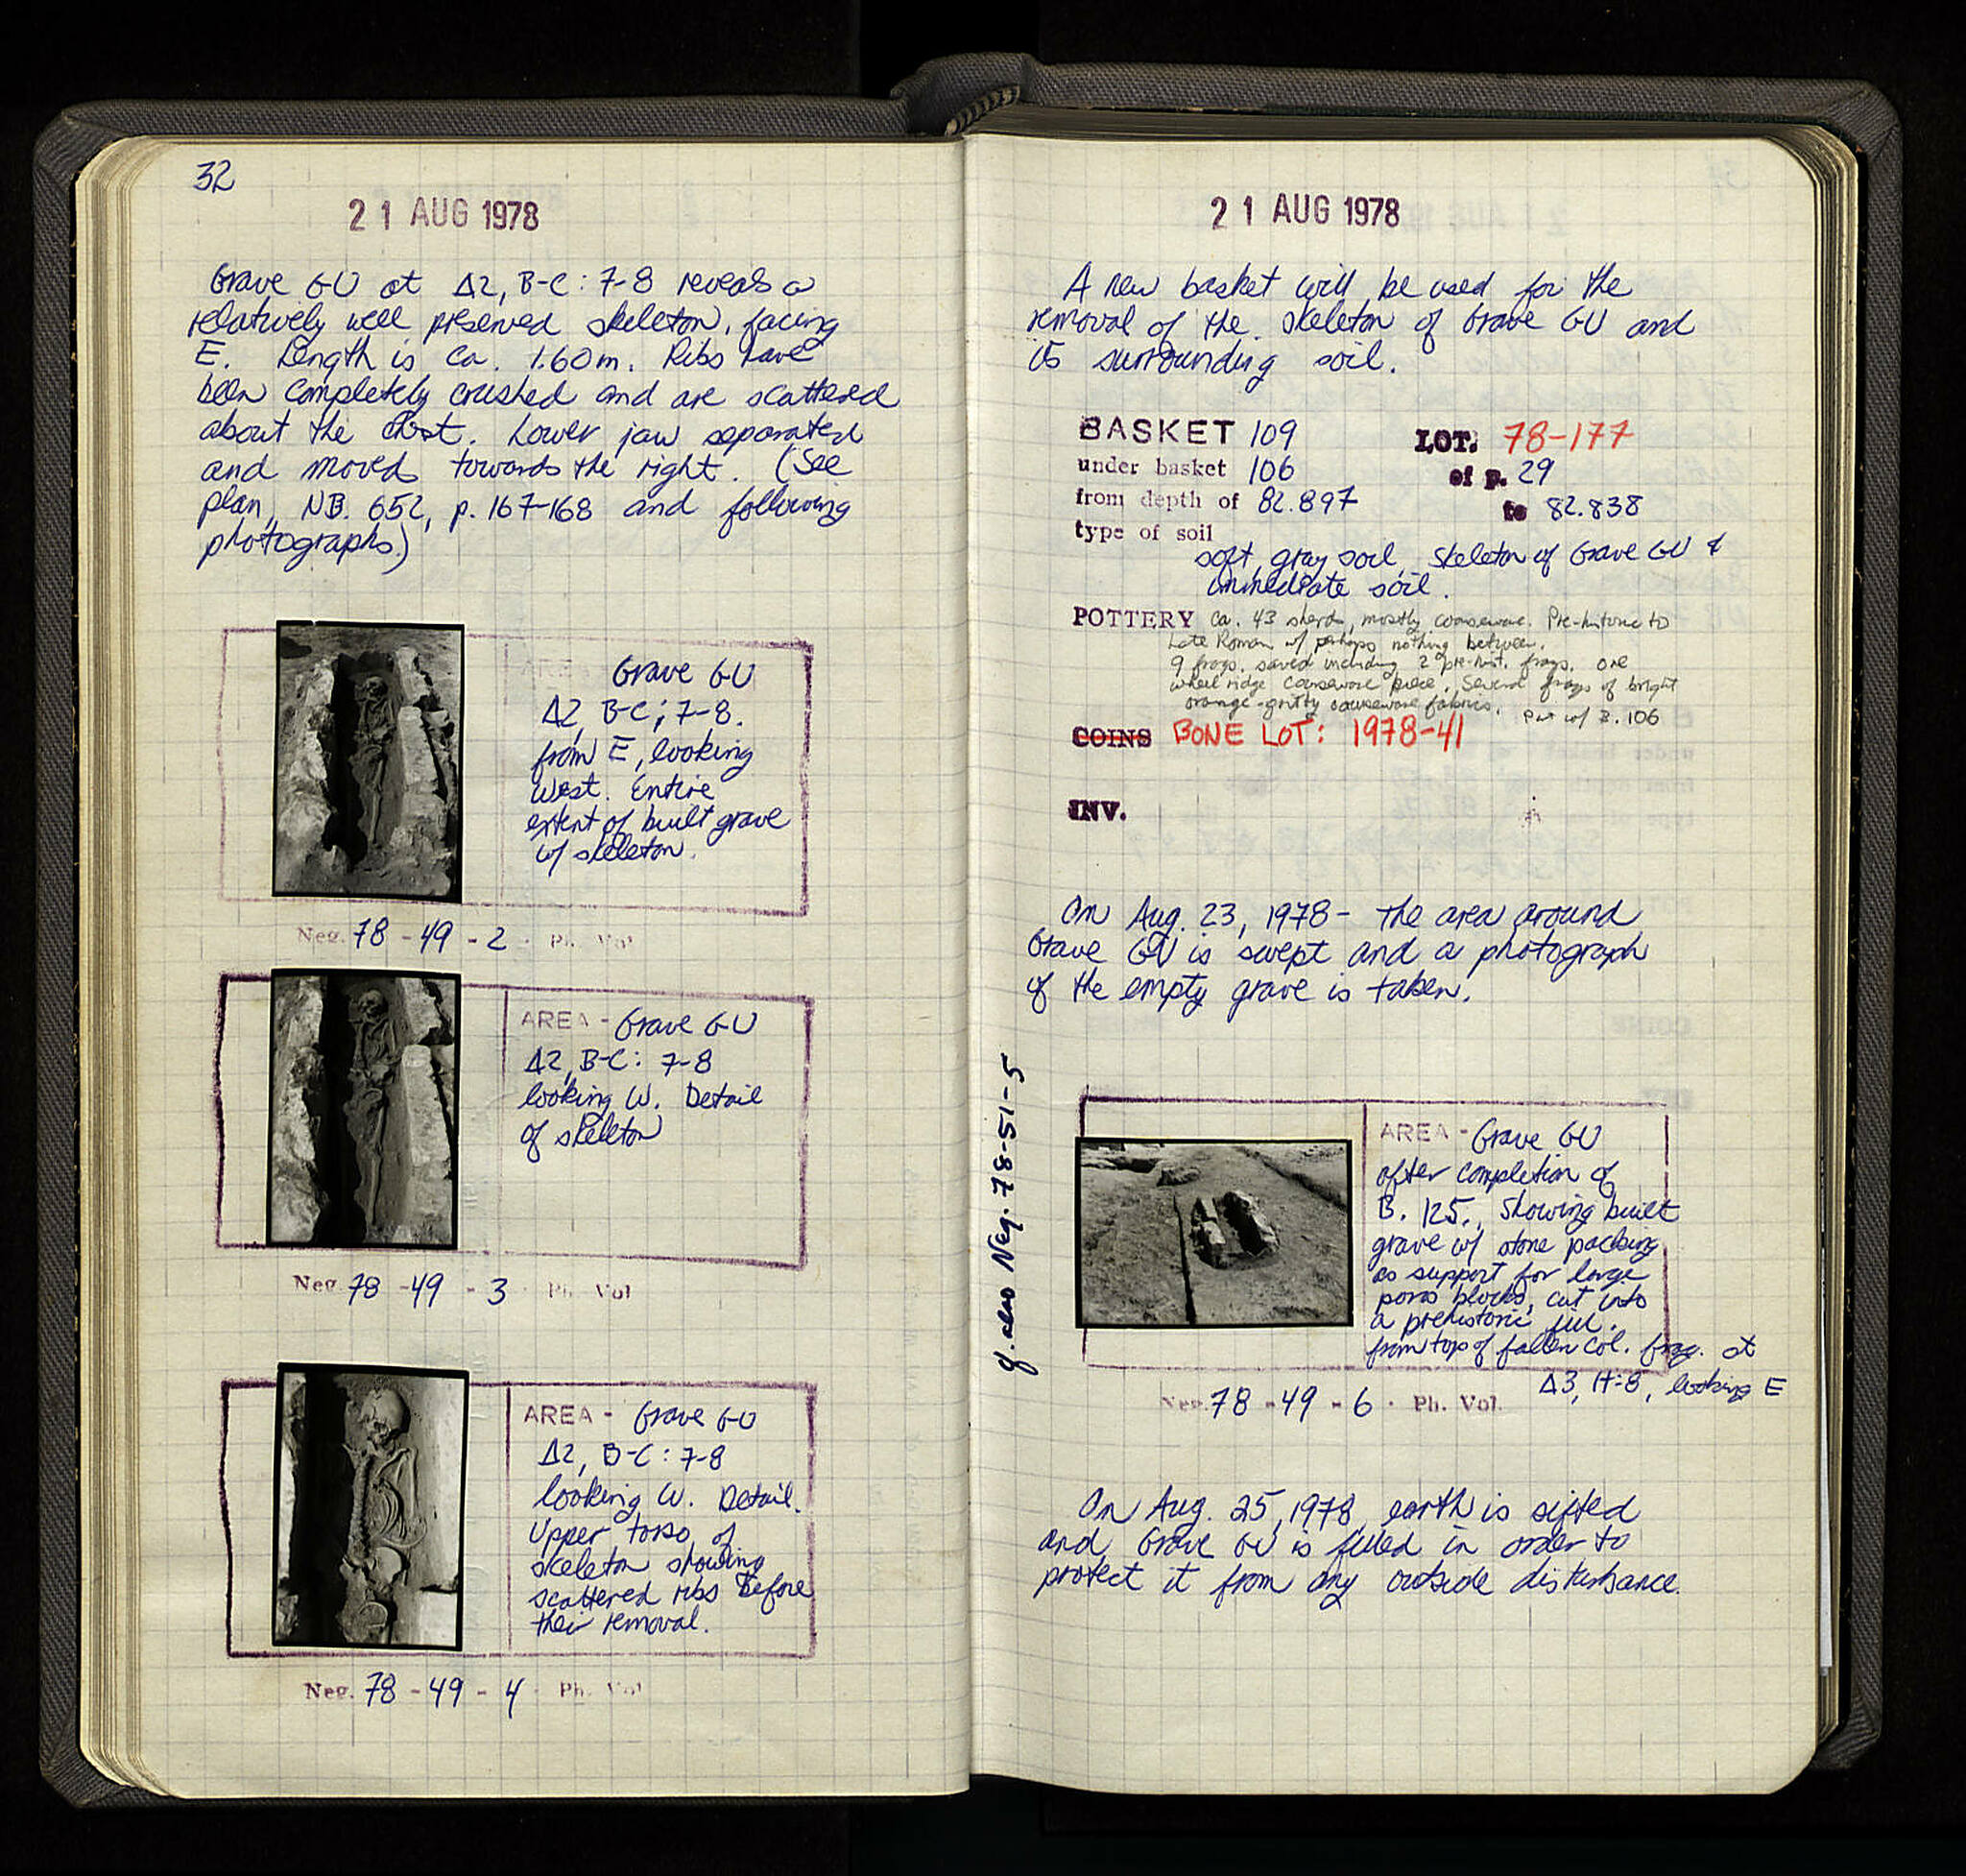 32
21 AUG 1978
Grave GU at Δ2, B-C: 7-8 reveals a
relatively well preserved skeleton, facing
E. Length is ca. 1.60m. Ribs have
been completely crushed and are scattered
about the chest. Lower jaw separated
and moved towards the right. (See
plan, NB. 652, p. 167-168 and following
photographs.)
AREA Grave GU
Δ2, B-C; 7-8.
from E, looking
west. Entire
extent of built grave
w/ skeleton.
Neg. 78 - 49 - 2 · Ph. Vol
AREA - Grave GU
Δ2, B-C: 7-8
looking W. Detail
of skeleton
Neg. 78 - 49 - 3 Ph. Vol
AREA - Grave GU
Δ2, B-C: 7-8
looking W. Detail.
Upper torso of
skeleton showing
scattered ribs before
their removal.
Neg. 78 - 49 - 4 Ph. Vol
21 AUG 1978
A new basket will be used for the
removal of the skeleton of Grave GU and
its surrounding soil.
BASKET 109 LOT: 78-177
under basket 106 of p. 29
from depth of 82.897 to 82.838
type of soil
soft, gray soil, skeleton of Grave GU &
immediate soil.
POTTERY ca. 43 sherds, mostly coarseware. Pre-historic to
Late Roman w/ perhaps nothing between.
9 frags. saved including 2 pre-hist. frags. one
wheel ridge coarseware piece. Several frags of bright
orange-gritty coarseware fabrics. Put w/ B. 106
COINS BONE LOT: 1978-41
INV.
On Aug. 23, 1978 - the area around
Grave GU is swept and a photograph
of the empty grave is taken.
cf. also Neg. 78-51-5
AREA - Grave GU
after completion of
B. 125, showing built
grave w/ stone packing
as support for large
poros blocks, cut into
a prehistoric fill.
from top of fallen col. frag. at
Δ3, H:8, looking E
Neg. 78 - 49 - 6 · Ph. Vol.
On Aug. 25, 1978, earth is sifted
and Grave GU is filled in order to
protect it from any outside disturbance.